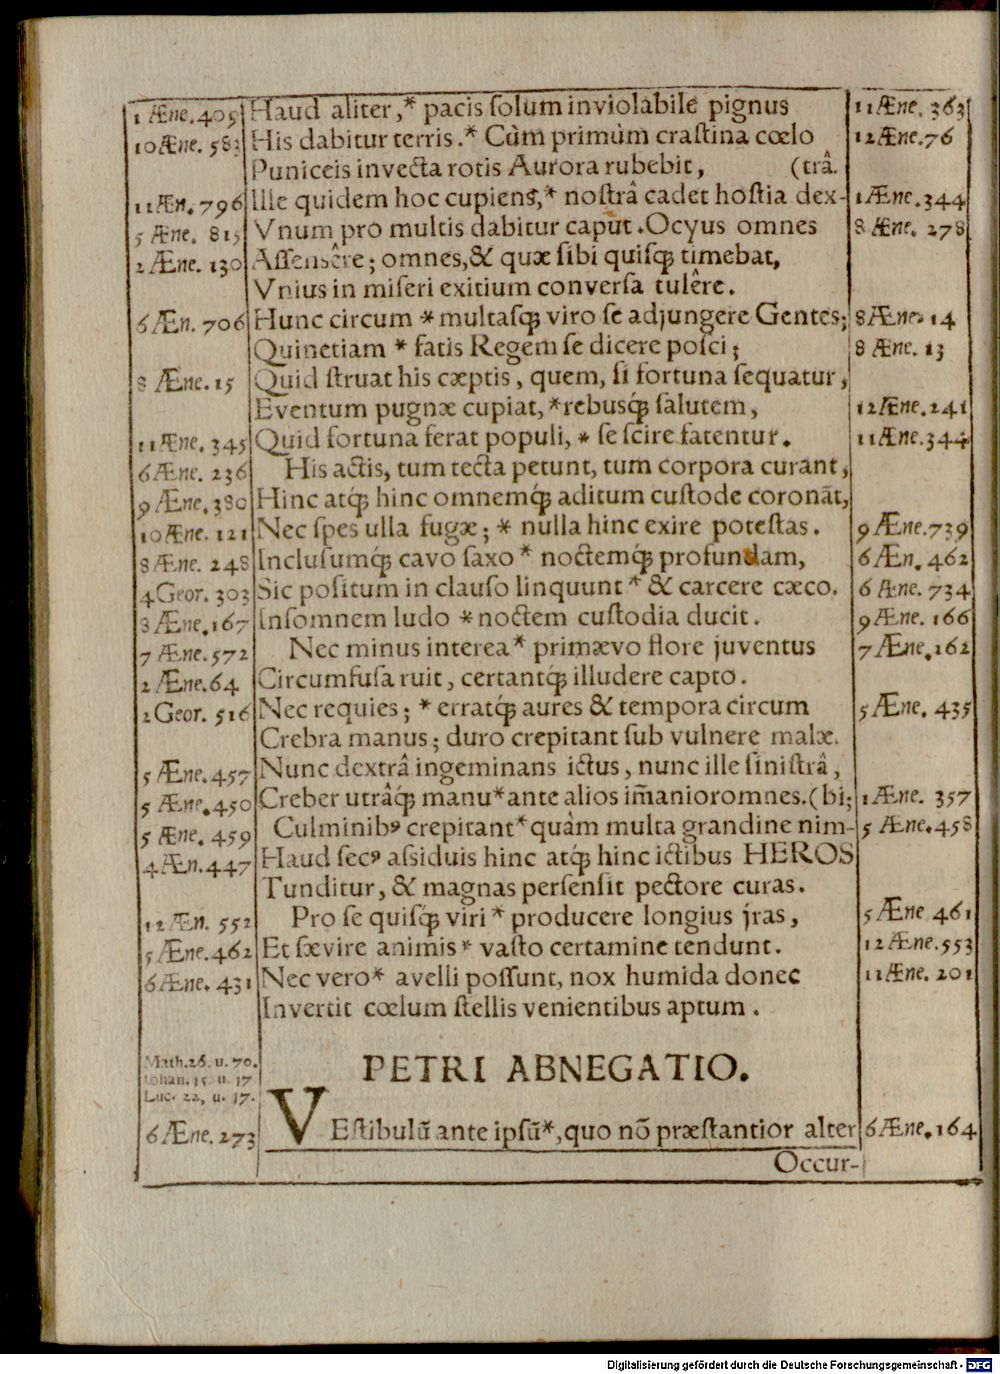 1 Æne. 405 Haud aliter,* pacis ſolum inviolabile pignus 11 Æne. 363
10 Æne. 583 His dabitur terris.* Cùm primùm craſtina cœlo 12 Æne. 76
Puniceis invecta rotis Aurora rubebit, (trâ.
11 Æn. 796 Ille quidem hoc cupiens,* noſtrâ cadet hoſtia dex- 1 Æne. 344
5 Æne. 815 Vnum pro multis dabitur caput. Ocyus omnes 8 Æne. 278
2 Æne. 130 Aſſensêre; omnes,& quæ ſibi quiſq́; timebat,
Vnius in miſeri exitium converſa tulêre.
6 Æn. 706 Hunc circum * multaſq́; viro ſe adjungere Gentes; 8 Æne. 14
Quinetiam * fatis Regem ſe dicere poſci; 8 Æne. 13
8 Æne. 15 Quid ſtruat his cæptis, quem, ſi fortuna ſequatur,
Eventum pugnæ cupiat,* rebusq́; ſalutem, 12 Æne. 241
11 Æne. 345 Quid fortuna ferat populi, * ſe ſcire fatentur. 11 Æne. 344
6 Æne. 236 His actis, tum tecta petunt, tum corpora curant,
9 Æne. 380 Hinc atq́; hinc omnemq́; aditum cuſtode coronãt,
10 Æne. 121 Nec ſpes ulla fugæ; * nulla hinc exire poteſtas. 9 Æne. 739
8 Æne. 248 Incluſumq́; cavo ſaxo * noctemq́; profundam, 6 Æn. 462
4 Geor. 303 Sic poſitum in clauſo linquunt * & carcere cæco. 6 Æne. 734
3 Æne. 167 Inſomnem ludo * noctem cuſtodia ducit. 9 Æne. 166
7 Æne. 572 Nec minus interea * primævo flore juventus 7 Æne. 162
2 Æne. 64 Circumfuſa ruit, certantq́; illudere capto.
2 Geor. 516 Nec requies; * erratq́; aures & tempora circum 5 Æne. 435
Crebra manus; duro crepitant ſub vulnere malæ.
5 Æne. 457 Nunc dextrâ ingeminans ictus, nunc ille ſiniſtrâ,
5 Æne. 450 Creber utrâq́; manu* ante alios im̃anior omnes. (bi; 1 Æne. 357
5 Æne. 459 Culminibꝰ crepitant* quâm multa grandine nim- 5 Æne. 458
4 Æn. 447 Haud ſecꝰ aſſiduis hinc atq́; hinc ictibus HEROS
Tunditur, & magnas perſenſit pectore curas.
12 Æn. 552 Pro ſe quiſq́; viri * producere longius jras, 5 Æne 461
5 Æne. 462 Et ſævire animis * vaſto certamine tendunt. 12 Æne. 553
6 Æne. 431 Nec vero* avelli poſſunt, nox humida donec 11 Æne. 201
Invertit cœlum ſtellis venientibus aptum.
Math. 26. u. 70.
Iohan. 15 u. 17
Luc. 22, u. 17.
PETRI ABNEGATIO.
6 Æne. 273 VEſtibulũ ante ipſũ*, quo nõ præſtantior alter 6 Æne. 164
Occur-
Digitalisierung gefördert durch die Deutsche Forschungsgemeinschaft - DFG